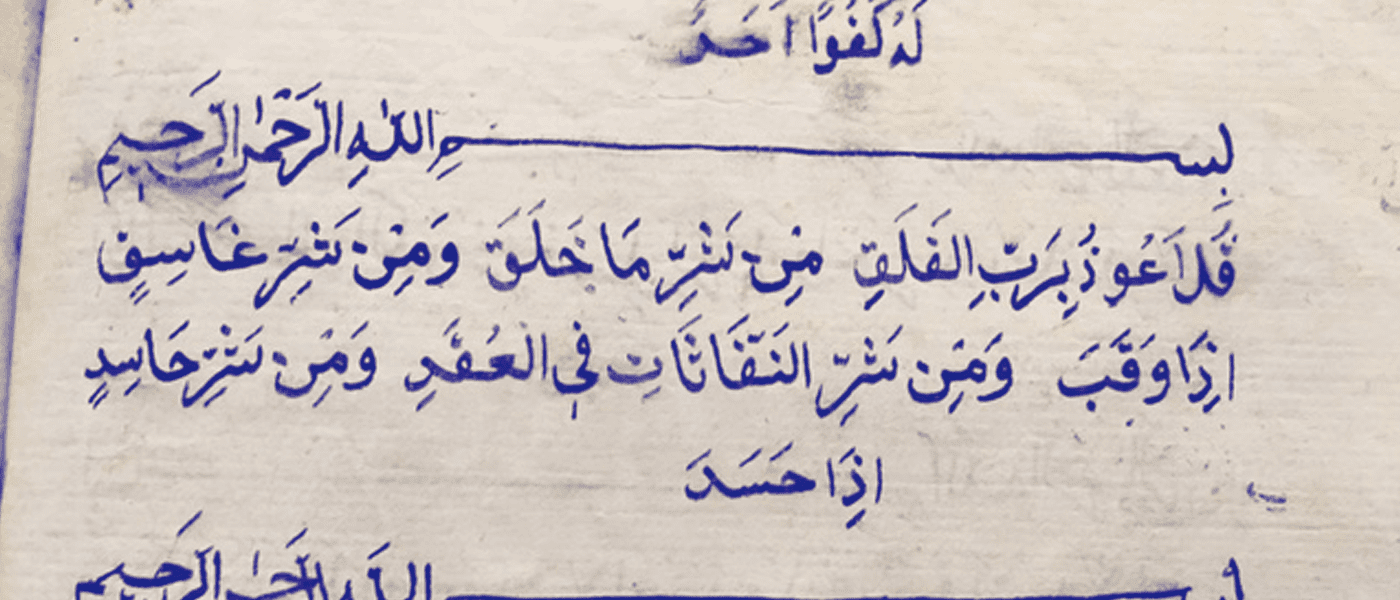 لَهُ كُفُوًا اَحَدٌ
بِسْــــــــــمِ اللّٰهِ الرَّحْمٰنِ الرَّحِيمِ
قُلْ اَعُوذُ بِرَبِّ الفَلَقِ مِنْ شَرِّ مَا خَلَقَ وَمِنْ شَرِّ غَاسِقٍ
اِذَا وَقَبَ وَمِنْ شَرِّ النَّفَّاثَاتِ فِي العُقَدِ وَمِنْ شَرِّ حَاسِدٍ
اِذَا حَسَدَ
بِسْــــــــــمِ اللّٰهِ الرَّحْمٰنِ الرَّحِيمِ